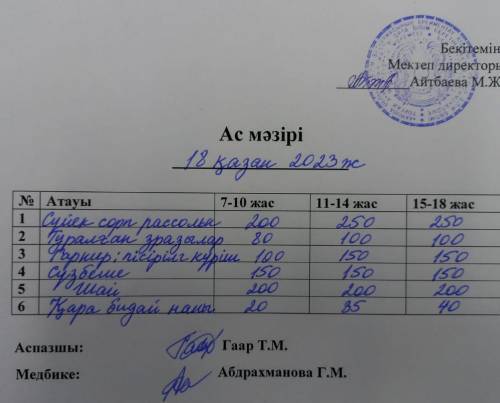 Бекітемін
Мектеп директоры
Айтбаева М.Ж
Ас мәзірі
18 қазан 2023ж
№ Атауы 7-10 жас 11-14 жас 15-18 жас
1 Сүйек сорп рассольн 200 250 250
2 Туралған зразылар 80 100 100
3 Гарнир: пісірілг күріш 100 150 150
4 Сүзбеше 150 150 150
5 Шай 200 200 200
6 Қара бидай наны 20 35 40
Аспазшы: Гаар Т.М.
Медбике: Абдрахманова Г.М.